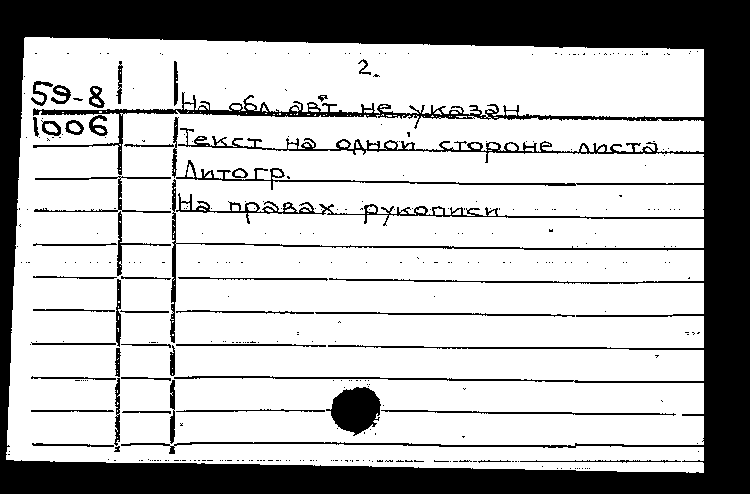 2.
59-8
1006
На обл. авт. не указан
Текст на одной стороне листа
Литогр.
На правах рукописи